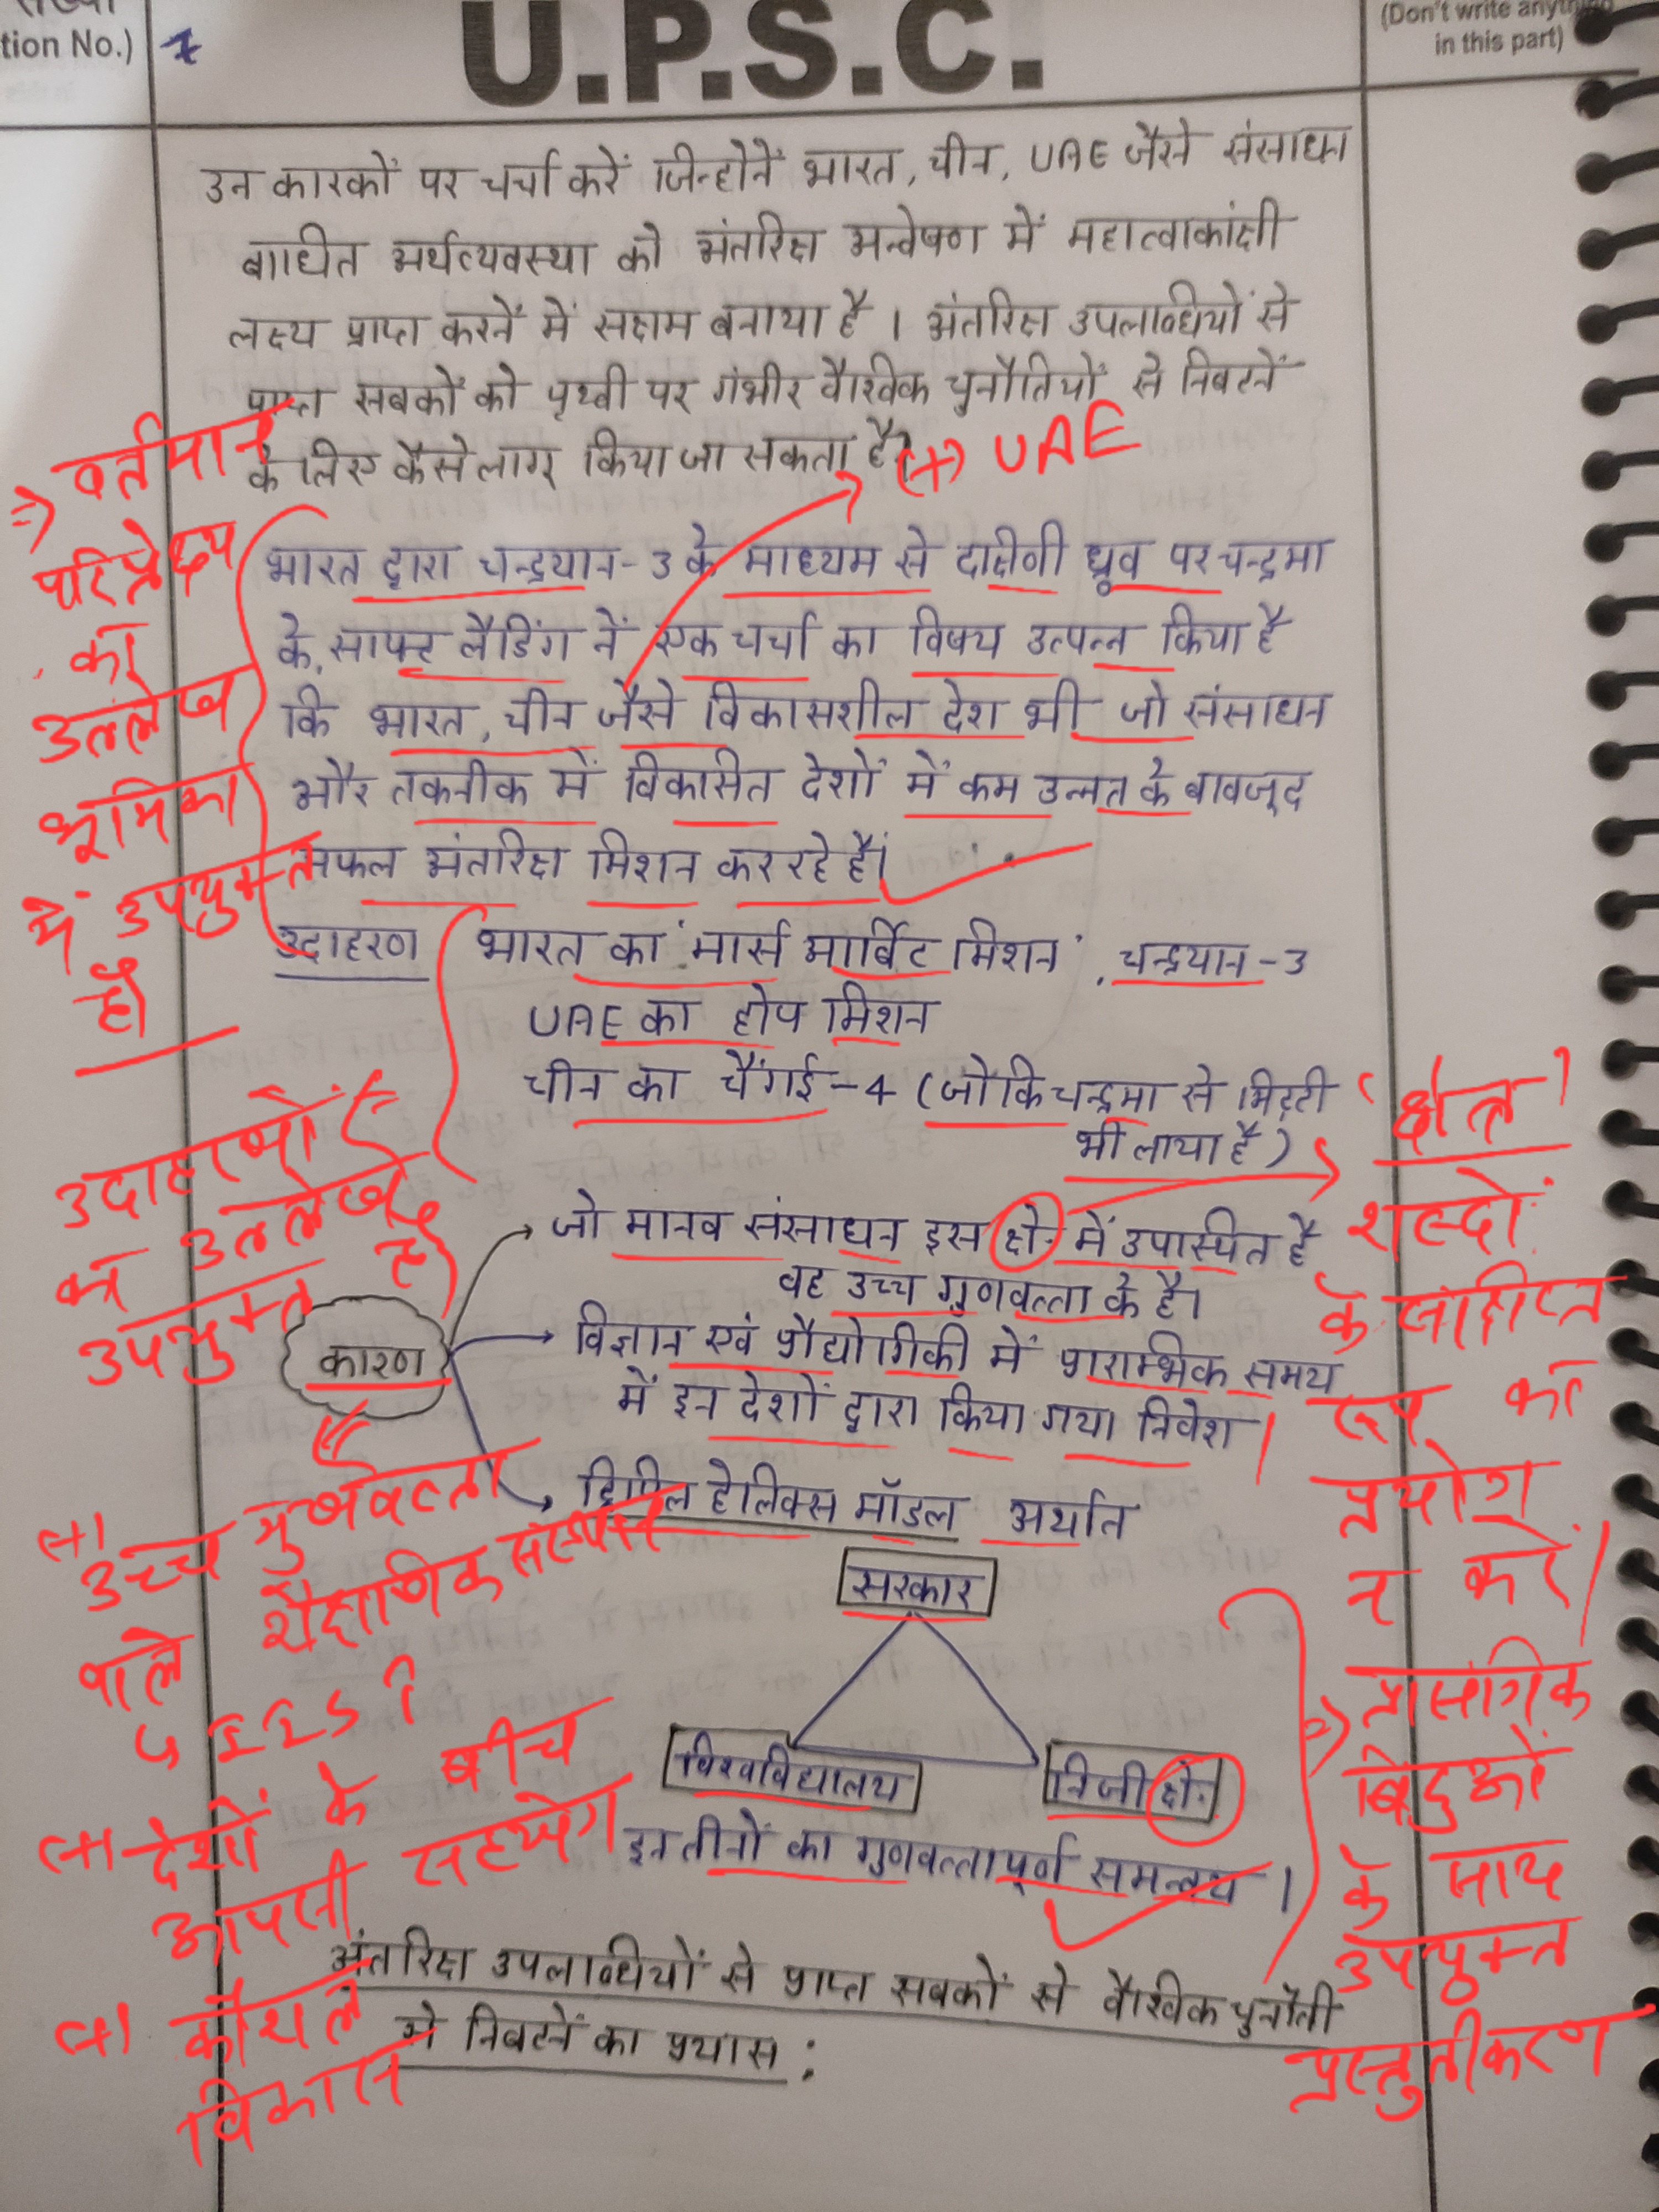 tion No.)
1
U.P.S.C.
(Don't write anything
in this part)
उन कारकों पर चर्चा करें जिन्होनें भारत, चीन, UAE जैसे संसाधन
बाधित अर्थव्यवस्था को अंतरिक्ष अन्वेषण में महात्वाकांक्षी
लक्ष्य प्राप्त करनें में सक्षम बनाया है। अंतरिक्ष उपलब्धियों से
प्राप्त सबकों को पृथ्वी पर गंभीर वैश्विक चुनौतियों से निबटनें
के लिए कैसे लागू किया जा सकता है?
(+) UAE
=> वर्तमान
परिप्रेक्ष्य
का
उल्लेख
भूमिका
में उपयुक्त
है।
भारत द्वारा चन्द्रयान-3 के माध्यम से दक्षिणी ध्रुव पर चन्द्रमा
के साफ्ट लैडिंग नें एक चर्चा का विषय उत्पन्न किया है
कि भारत, चीन जैसे विकासशील देश भी जो संसाधन
और तकनीक में विकसित देशों में कम उन्नत के बावजूद
सफल अंतरिक्ष मिशन कर रहे है।
उदाहरण भारत का 'मार्स आर्बिट मिशन', चन्द्रयान-3
UAE का होप मिशन
चीन का चैंगई-4 (जोकि चन्द्रमा से मिट्टी
भी लाया है)
उदाहरणों
का उल्लेख
उपयुक्त है
कारण
जो मानव संसाधन इस क्षे. में उपस्थित है
वह उच्च गुणवत्ता के है।
विज्ञान एवं प्रौद्योगिकी में प्रारम्भिक समय
में इन देशों द्वारा किया गया निवेश।
ट्रिपल हेलिक्स मॉडल अर्थात
सरकार
विश्वविद्यालय
निजी क्षे.
इन तीनों का गुणवत्तापूर्ण समन्वय।
'क्षेत्र'
शब्दों
के संक्षिप्त
रूप का
प्रयोग
न करें।
=> प्रासंगिक
बिंदुओं
के साथ
उपयुक्त
प्रस्तुतीकरण
(+) उच्च गुणवत्ता
वाले शैक्षणिक संस्थान
(+) देशों के बीच
आपसी सहयोग
(+) कौशल
विकास
अंतरिक्ष उपलब्धियों से प्राप्त सबकों से वैश्विक चुनौती
से निबटनें का प्रयास: